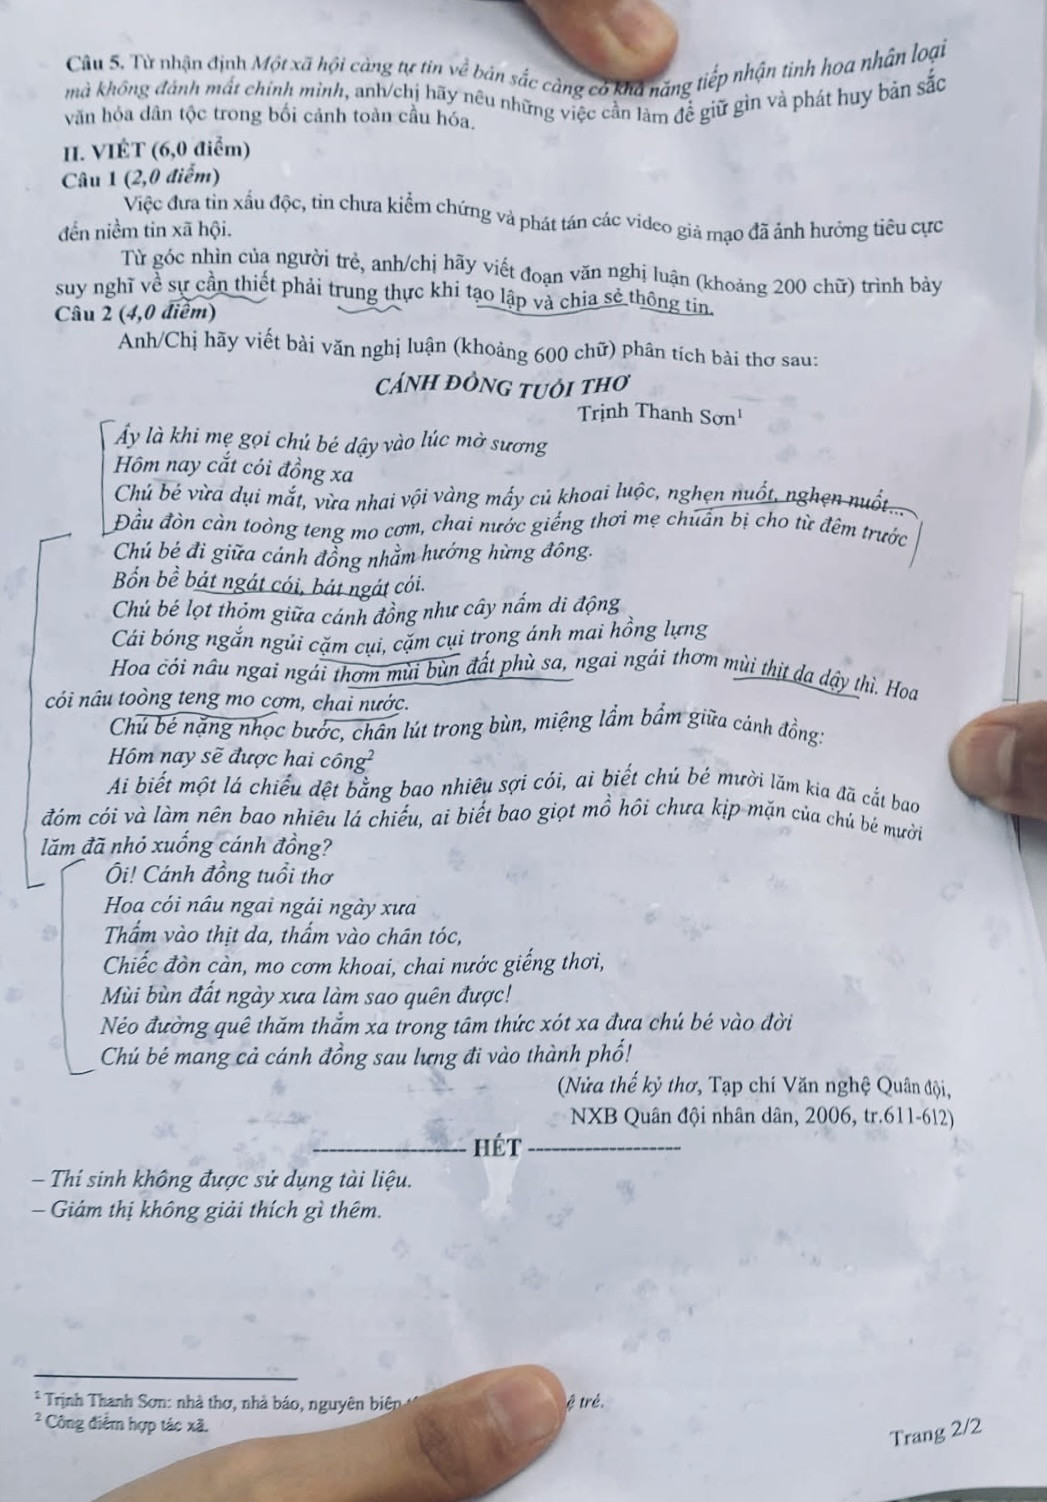 Câu 5. Từ nhận định Một xã hội càng tự tin về bản sắc càng có khả năng tiếp nhận tinh hoa nhân loại
mà không đánh mất chính mình, anh/chị hãy nêu những việc cần làm để giữ gìn và phát huy bản sắc
văn hóa dân tộc trong bối cảnh toàn cầu hóa.
II. VIẾT (6,0 điểm)
Câu 1 (2,0 điểm)
Việc đưa tin xấu độc, tin chưa kiểm chứng và phát tán các video giả mạo đã ảnh hưởng tiêu cực
đến niềm tin xã hội.
Từ góc nhìn của người trẻ, anh/chị hãy viết đoạn văn nghị luận (khoảng 200 chữ) trình bày
suy nghĩ về sự cần thiết phải trung thực khi tạo lập và chia sẻ thông tin.
Câu 2 (4,0 điểm)
Anh/Chị hãy viết bài văn nghị luận (khoảng 600 chữ) phân tích bài thơ sau:
CÁNH ĐỒNG TUỔI THƠ
Trịnh Thanh Sơn¹
Ấy là khi mẹ gọi chú bé dậy vào lúc mờ sương
Hôm nay cắt cói đồng xa
Chú bé vừa dụi mắt, vừa nhai vội vàng mấy củ khoai luộc, nghẹn nuốt, nghẹn nuốt...
Đầu đòn càn toòng teng mo cơm, chai nước giếng thơi mẹ chuẩn bị cho từ đêm trước
Chú bé đi giữa cánh đồng nhằm hướng hừng đông.
Bốn bề bát ngát cói, bát ngát cói.
Chú bé lọt thỏm giữa cánh đồng như cây nấm di động
Cái bóng ngắn ngủi cặm cụi, cặm cụi trong ánh mai hồng lựng
Hoa cói nâu ngai ngái thơm mùi bùn đất phù sa, ngai ngái thơm mùi thịt da dậy thì. Hoa
cói nâu toòng teng mo cơm, chai nước.
Chú bé nặng nhọc bước, chân lút trong bùn, miệng lẩm bẩm giữa cánh đồng:
Hôm nay sẽ được hai công²
Ai biết một lá chiếu dệt bằng bao nhiêu sợi cói, ai biết chú bé mười lăm kia đã cắt bao
đóm cói và làm nên bao nhiêu lá chiếu, ai biết bao giọt mồ hôi chưa kịp mặn của chú bé mười
lăm đã nhỏ xuống cánh đồng?
Ôi! Cánh đồng tuổi thơ
Hoa cói nâu ngai ngái ngày xưa
Thấm vào thịt da, thấm vào chân tóc,
Chiếc đòn càn, mo cơm khoai, chai nước giếng thơi,
Mùi bùn đất ngày xưa làm sao quên được!
Nẻo đường quê thăm thẳm xa trong tâm thức xót xa đưa chú bé vào đời
Chú bé mang cả cánh đồng sau lưng đi vào thành phố!
(Nửa thế kỷ thơ, Tạp chí Văn nghệ Quân đội,
NXB Quân đội nhân dân, 2006, tr.611-612)
HẾT
– Thí sinh không được sử dụng tài liệu.
– Giám thị không giải thích gì thêm.
¹ Trịnh Thanh Sơn: nhà thơ, nhà báo, nguyên biên trẻ.
² Công điểm hợp tác xã.
Trang 2/2